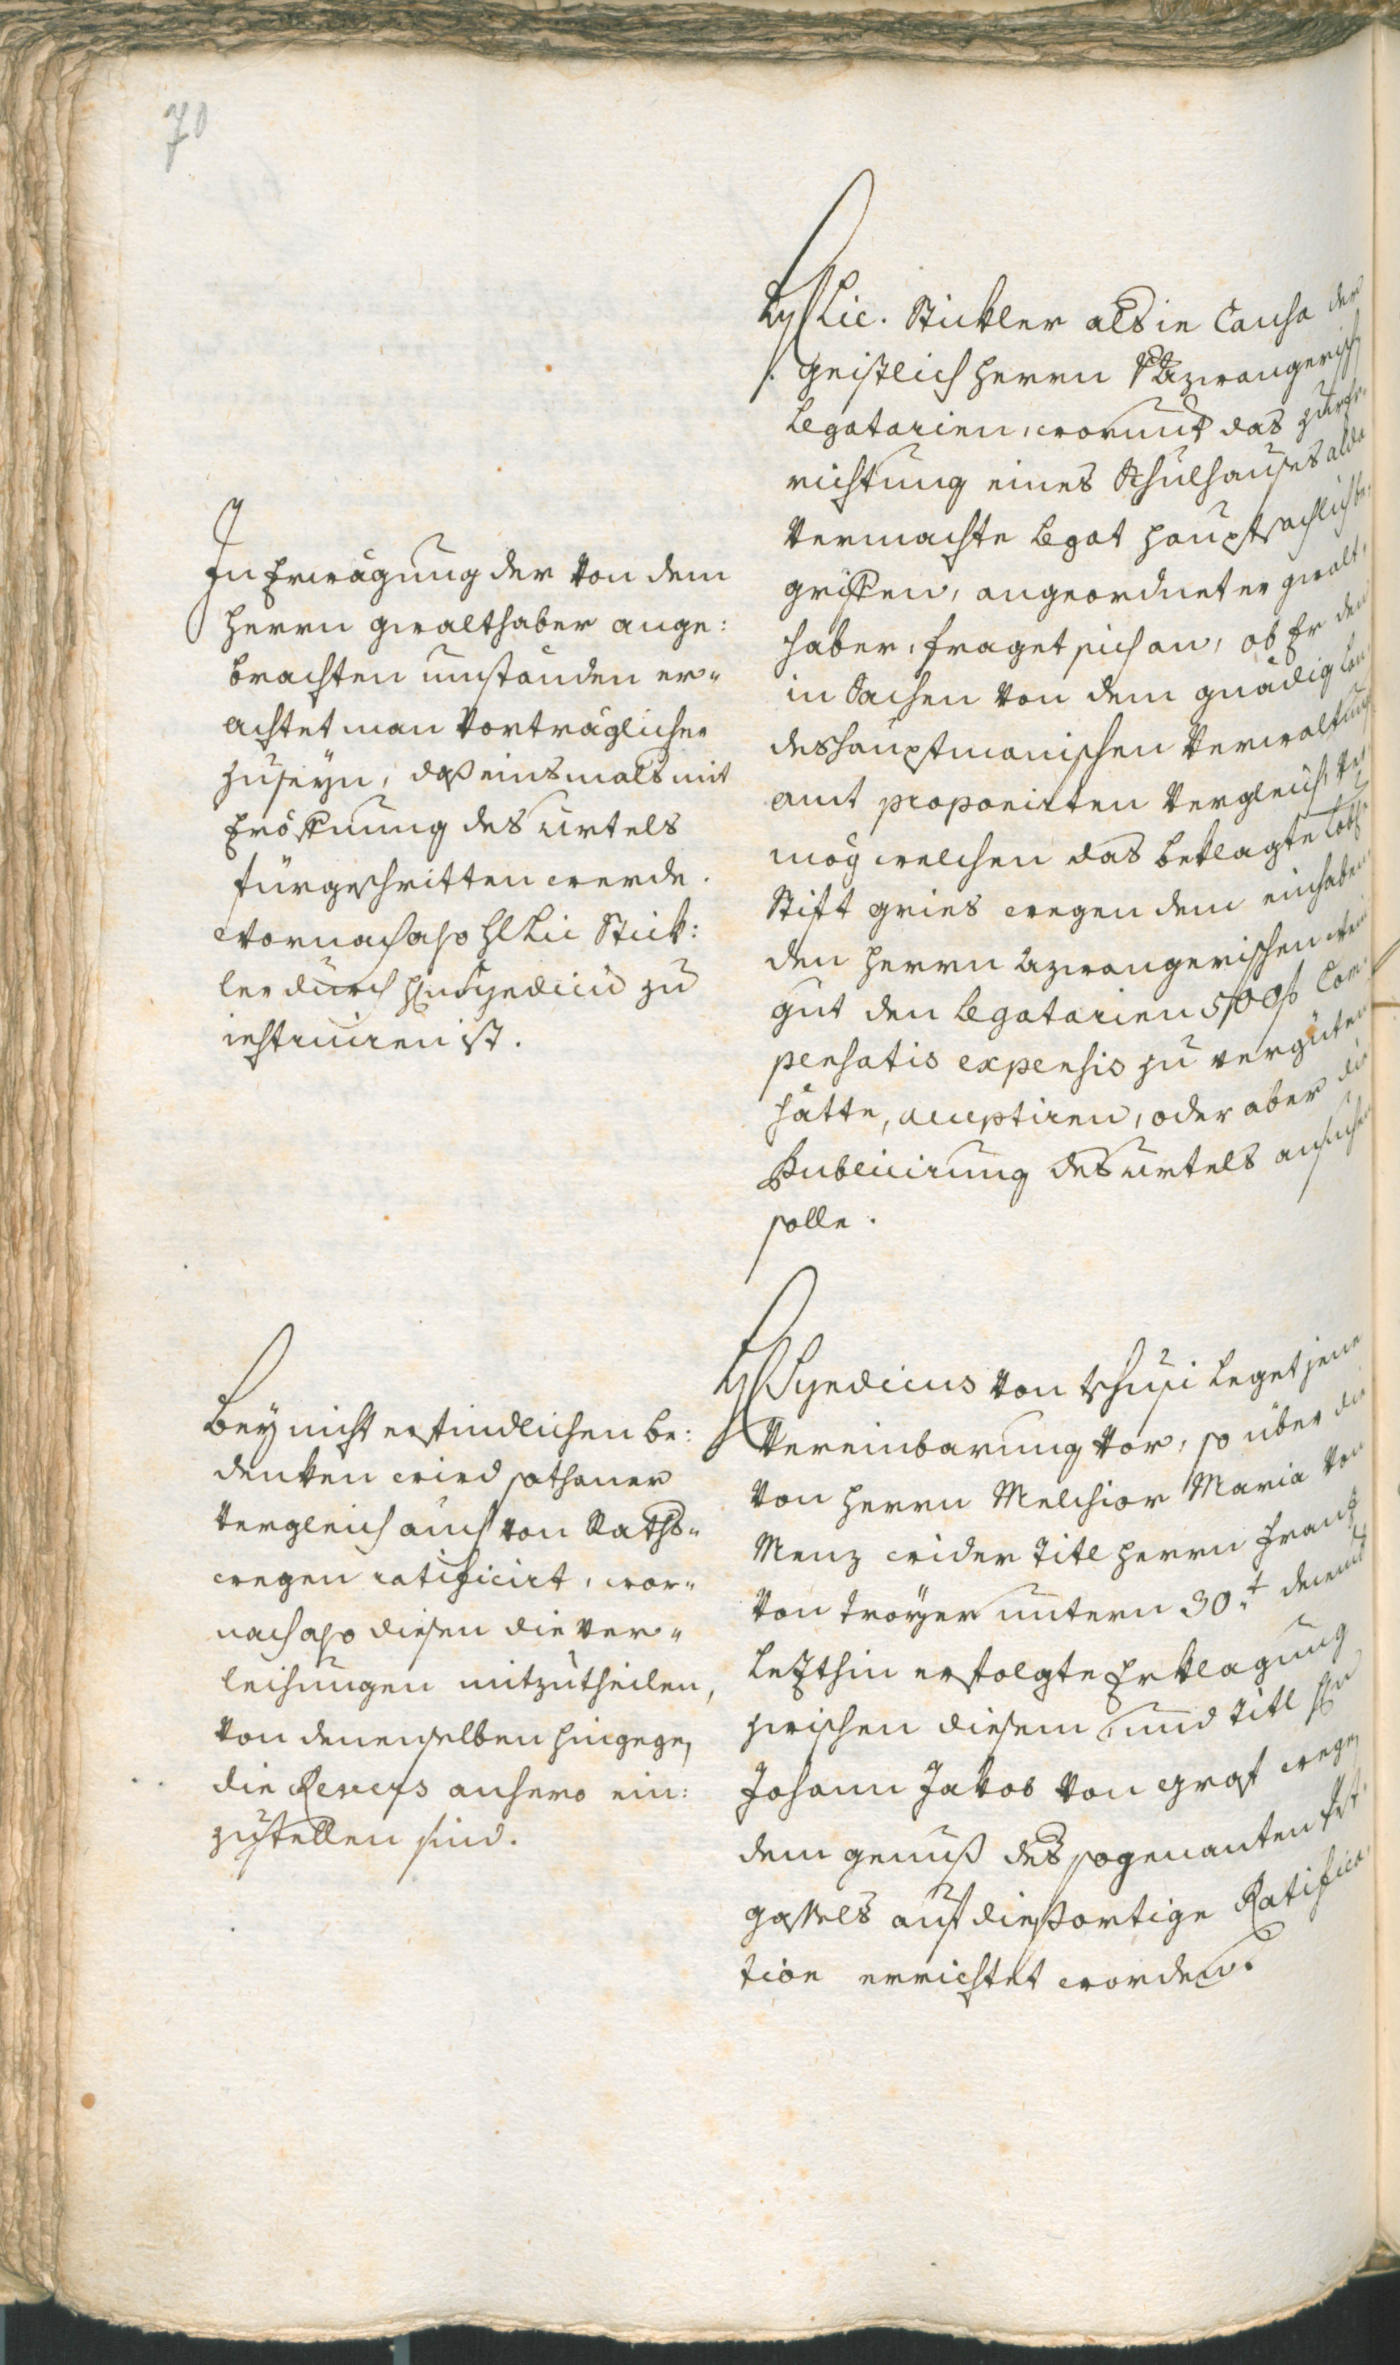 70
Hr Lic. Stickler als in Causa der
geistlich Herrn Azwangerisch
Legatarien, worunter das zur Er-
richtung eines Schulhauses alda
vermachte Legat hauptsächlich be-
griffen, angeordneter gwalt-
haber, fraget sich an, ob Er den
in Sachen von dem gnädig Lan-
deshauptmanischen Verwaltung
amt proponirten Vergleich, ver-
mög welchen das beklagte Löbl
Stift Gries wegen dem einhaben-
den Herrn Azwangerischen
gut den Legatarien 500 f Com-
pensatis expensis zu vergüten
hätte, acceptiren, oder aber die
Publicirung des Urtels ansuchen
solle.
In Erwägung der von dem
Herrn gwalthaber ange:
brachten umständen er-
achtet man vorträglicher
zu seyn, daß einsmals mit
Eröffnung des Urtels
fürgeschritten werde.
Wornach also H Lic Stick:
ler durch Hrn Syndicu zu
instruiren ist.
Hr Syndicus von Tschusi leget jene
Vereinbarung vor, so über die
von Herrn Melchior Maria von
Menz wider Titl Herrn Franz
von Troyer untern 30.t decemb
letzthin erfolgte Erklagung
zwischen diesem und Titl Hrn
Johann Jakob von Graf wegen
dem genuß des sogenanten
gassels auf diesortige Ratifica-
tion errichtet worden.
Bey nicht erfindlichen be:
denken wird sothaner
Vergleich auch von Raths-
wegen ratificirt, wor-
nach also diesen die Ver-
leihungen mitzutheilen,
von denenselben hingegen
die Revers anhero ein:
zustellen sind.